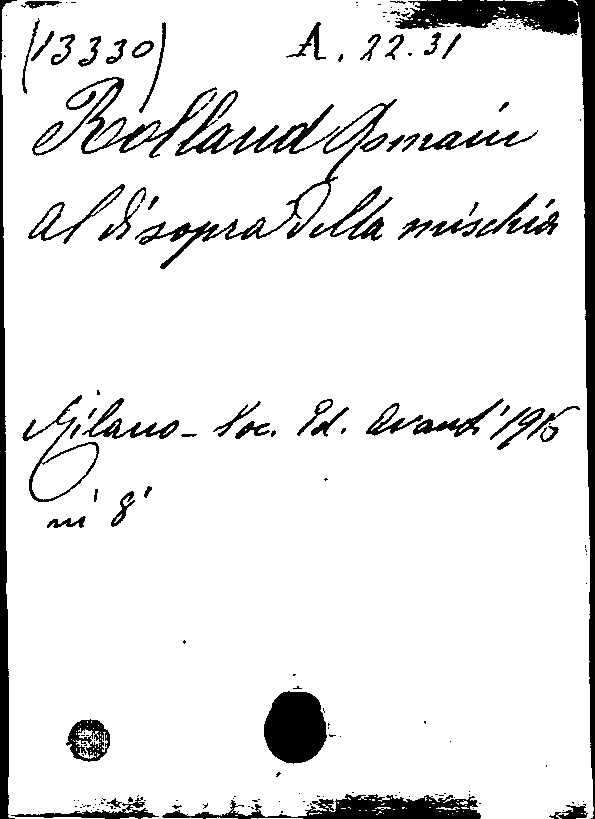 (13330) A. 22.31
Rolland Romain
Al disopra della mischia
Milano - Soc. Ed. Avanti 1916
in 8°